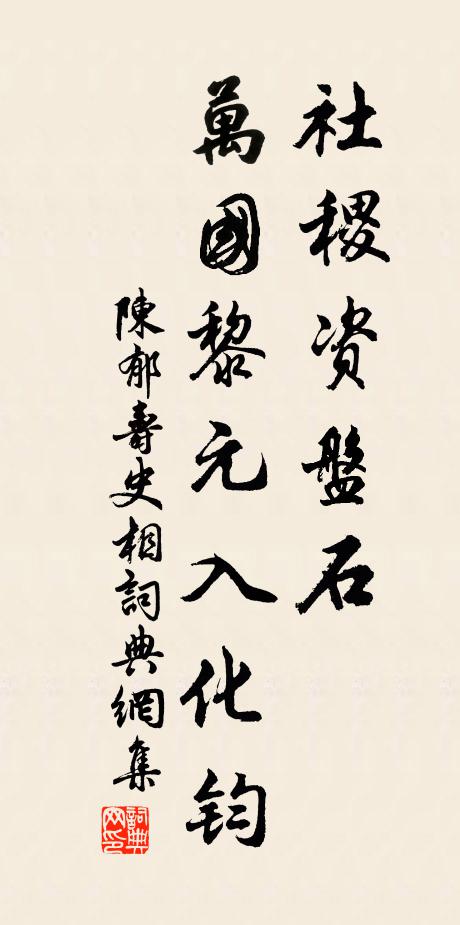 社稷资盤石
萬國黎元入化鈞
陳郁壽史相詞典網集
詞典
网印